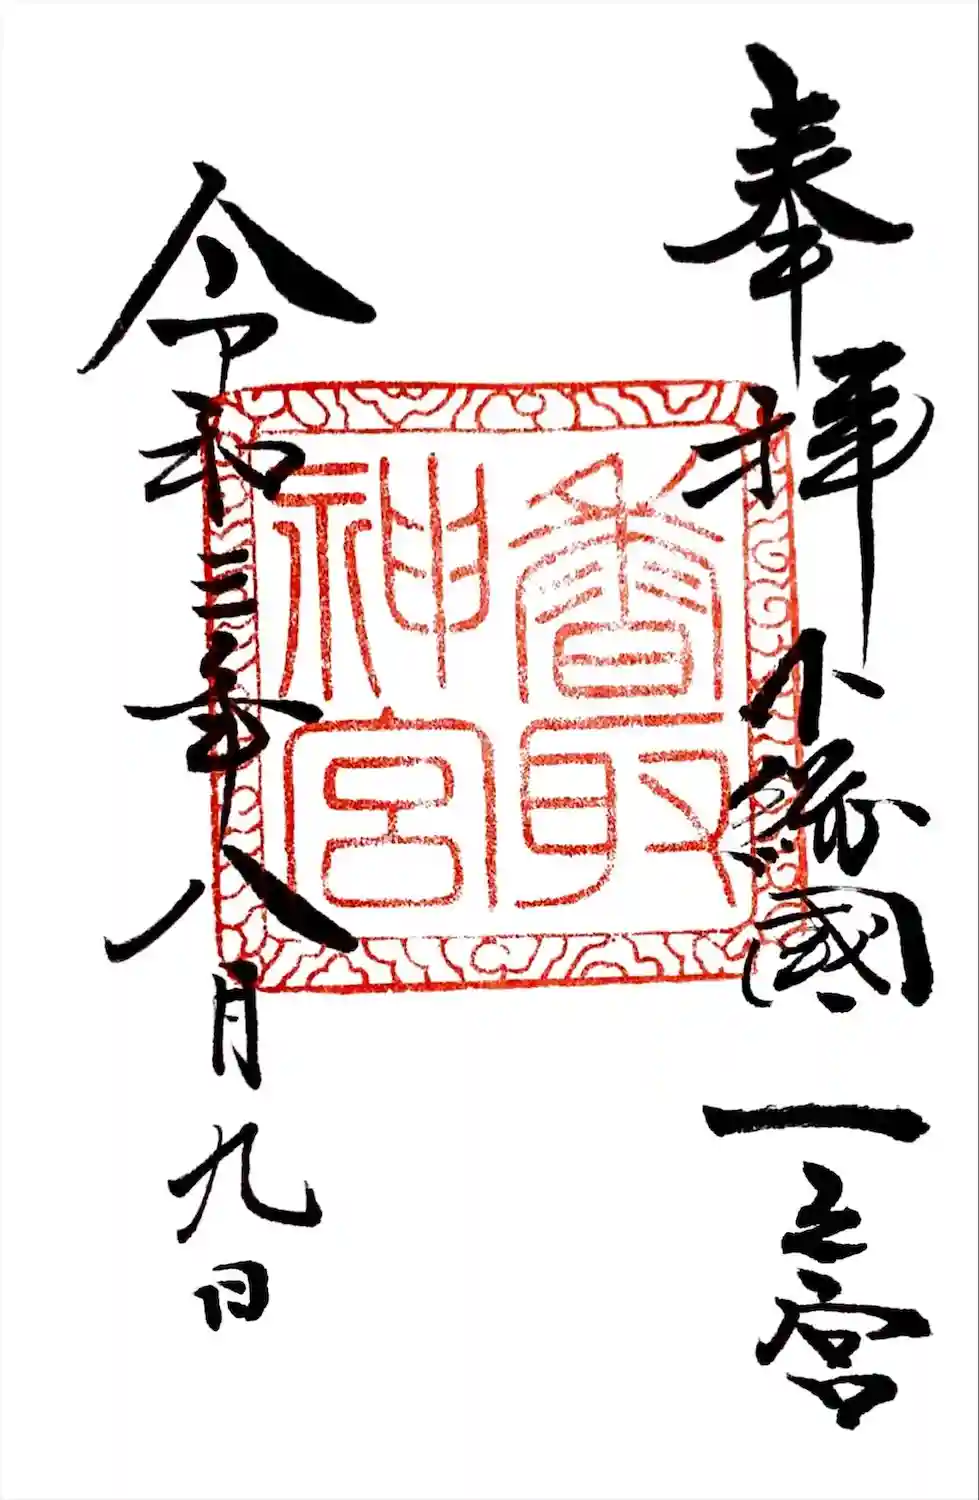 奉拝 下総國一之宮
香取
神宮
令和三年八月九日